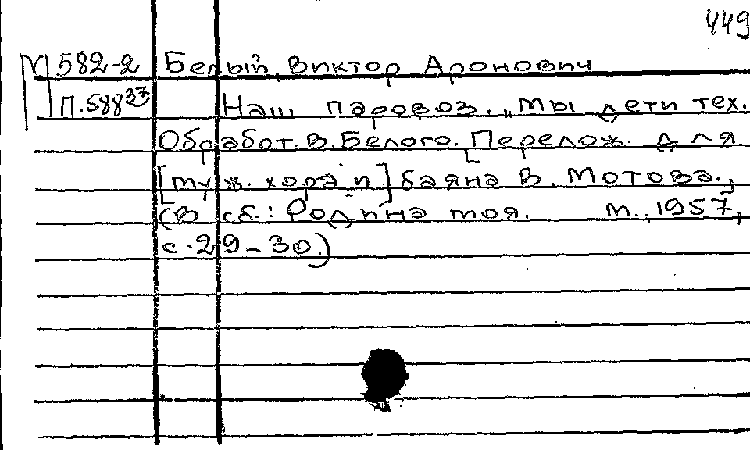 449
М 582-2 Белый, Виктор Аронович
П.588³⁷ Наш паровоз. „Мы дети тех.
Обработ. В. Белого. Перелож. для
[муж. хора и] баяна В. Мотова.
(В сб.: Родина моя. М., 1957,
с. 29-30.)